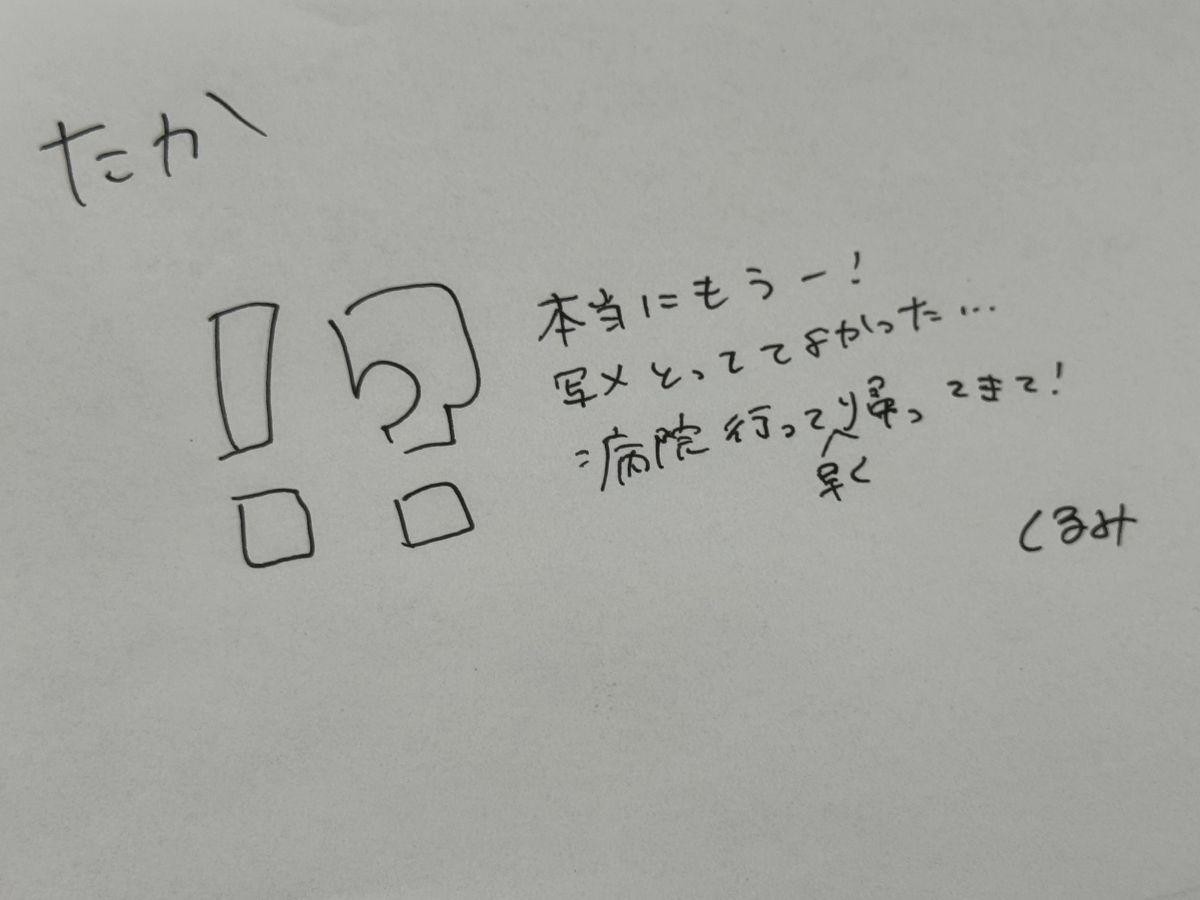 たか
!?
本当にもうー!
写メとっててよかった…
=病院行って早く帰ってきて!
くるみ